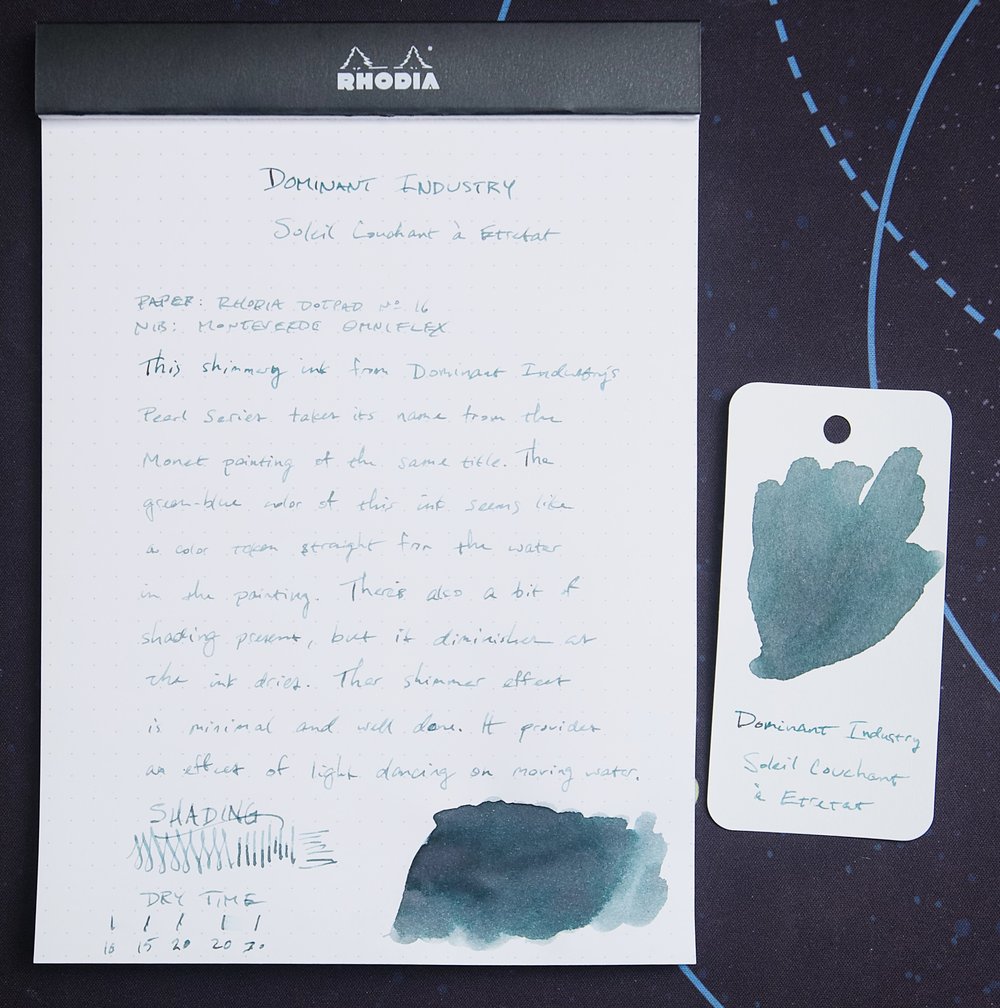 RHODIA
DOMINANT INDUSTRY
Soleil Couchant à Etretat
PAPER: RHODIA DOTPAD Nº 16
NIB: MONTEVERDE OMNIFLEX
This shimmery ink from Dominant Industry's
Pearl Series takes its name from the
Monet painting of the same title. The
green-blue color of this ink seems like
a color taken straight from the water
in the painting. There's also a bit of
shading present, but it diminishes as
the ink dries. Ther shimmer effect
is minimal and well done. It provides
an effect of light dancing on moving water.
SHADING
DRY TIME
10 15 20 20 30
Dominant Industry
Soleil Couchant
à Etretat